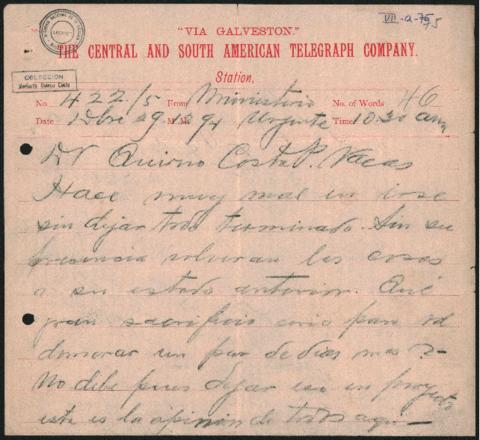 VII-a-75
"VIA GALVESTON."
THE CENTRAL AND SOUTH AMERICAN TELEGRAPH COMPANY.
COLECCION
Norberto Quirno Costa
Station,
No. 422/5 From Ministerio No. of Words 46
Date Dbre 29.1894 Urgente Time 10.30 am
Dr Quirno Costa P. Vacas
Hace muy mal en irse
sin dejar todo terminado. Sin su
presencia volveran las cosas
a su estado anterior. Qué
gran sacrificio seria para vd
demorar un par de dias mas?-
No debe pues dejar eso en proyecto
esta es la opinion de todos aqui -